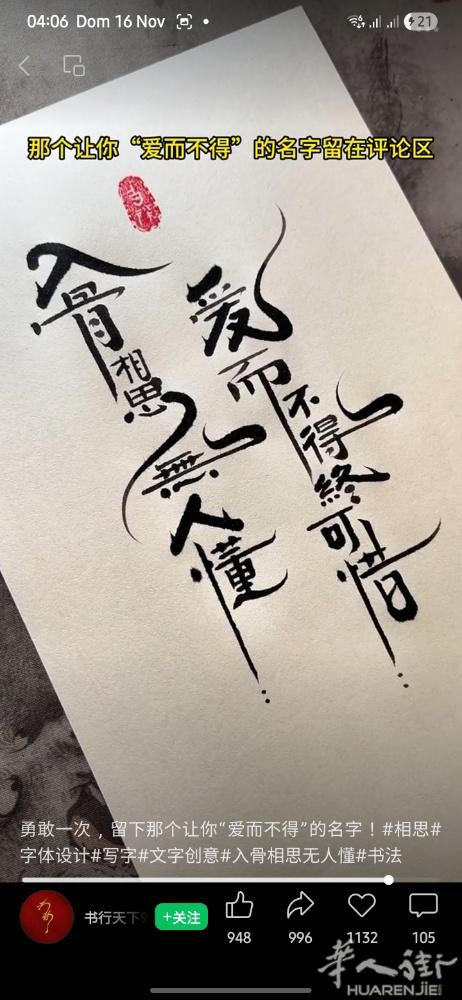 04:06 Dom 16 Nov 21
那个让你“爱而不得”的名字留在评论区
爱而不得終可惜
入骨相思無人懂
勇敢一次，留下那个让你“爱而不得”的名字！#相思#
字体设计#写字#文字创意#入骨相思无人懂#书法
书行天下 +关注
948 996 1132 105
華人街
HUARENJIE